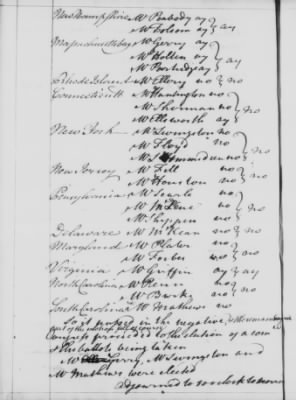 New Hampshire Mr Peabody ay } ay
Mr Folsom ay
Massachusettsbay Mr Gerry ay } ay
Mr Holten ay
Mr Partridge ay
Rhode Island Mr Ellery no } no
Connecticutt Mr Huntington no } no
Mr Sherman no
Mr Ellsworth ay
New York Mr Livingston no } no
Mr Floyd no
Mr no
New Jersey Mr Fell no } no
Mr Houston no
Pennsylvania Mr Searle no } no
Mr no
Mr no
Delaware Mr McKean no } no
Maryland Mr Plater no } no
Mr Forbes no
Virginia Mr Griffin ay } ay
North Carolina Mr Penn no } no
Mr Burke no
South Carolina Mr Mathews no no
So it passed in the negative
part of the
Congress proceeded to the election of a com
& the ballots being taken
Mr Gerry, Mr Livingston and
Mr Mathews were elected
Adjourned to 10 oclock to morrow